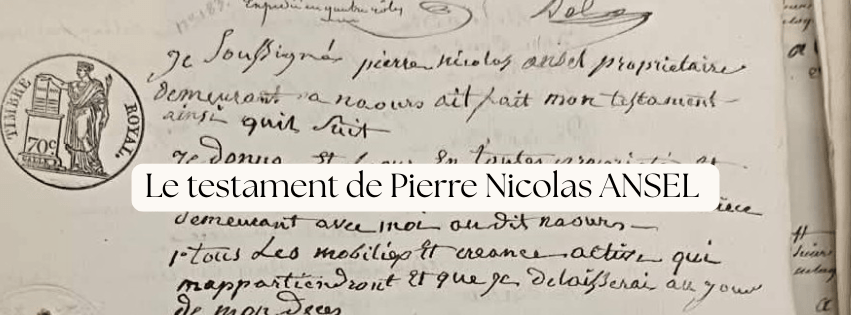 Expedié en quatre roles
TIMBRE ROYAL
70c
Je Soussigné pierre nicolas ansel proprietaire
demeurant a naours ait fait mon testament
ainsi quil Suit
Je donne Et en toutes
Le testament de Pierre Nicolas ANSEL
demeurant avec moi au dit naours
1° tous Les mobiliés Et creance active qui
mappartiendront Et que Je delaisserai au jour
de mon deces